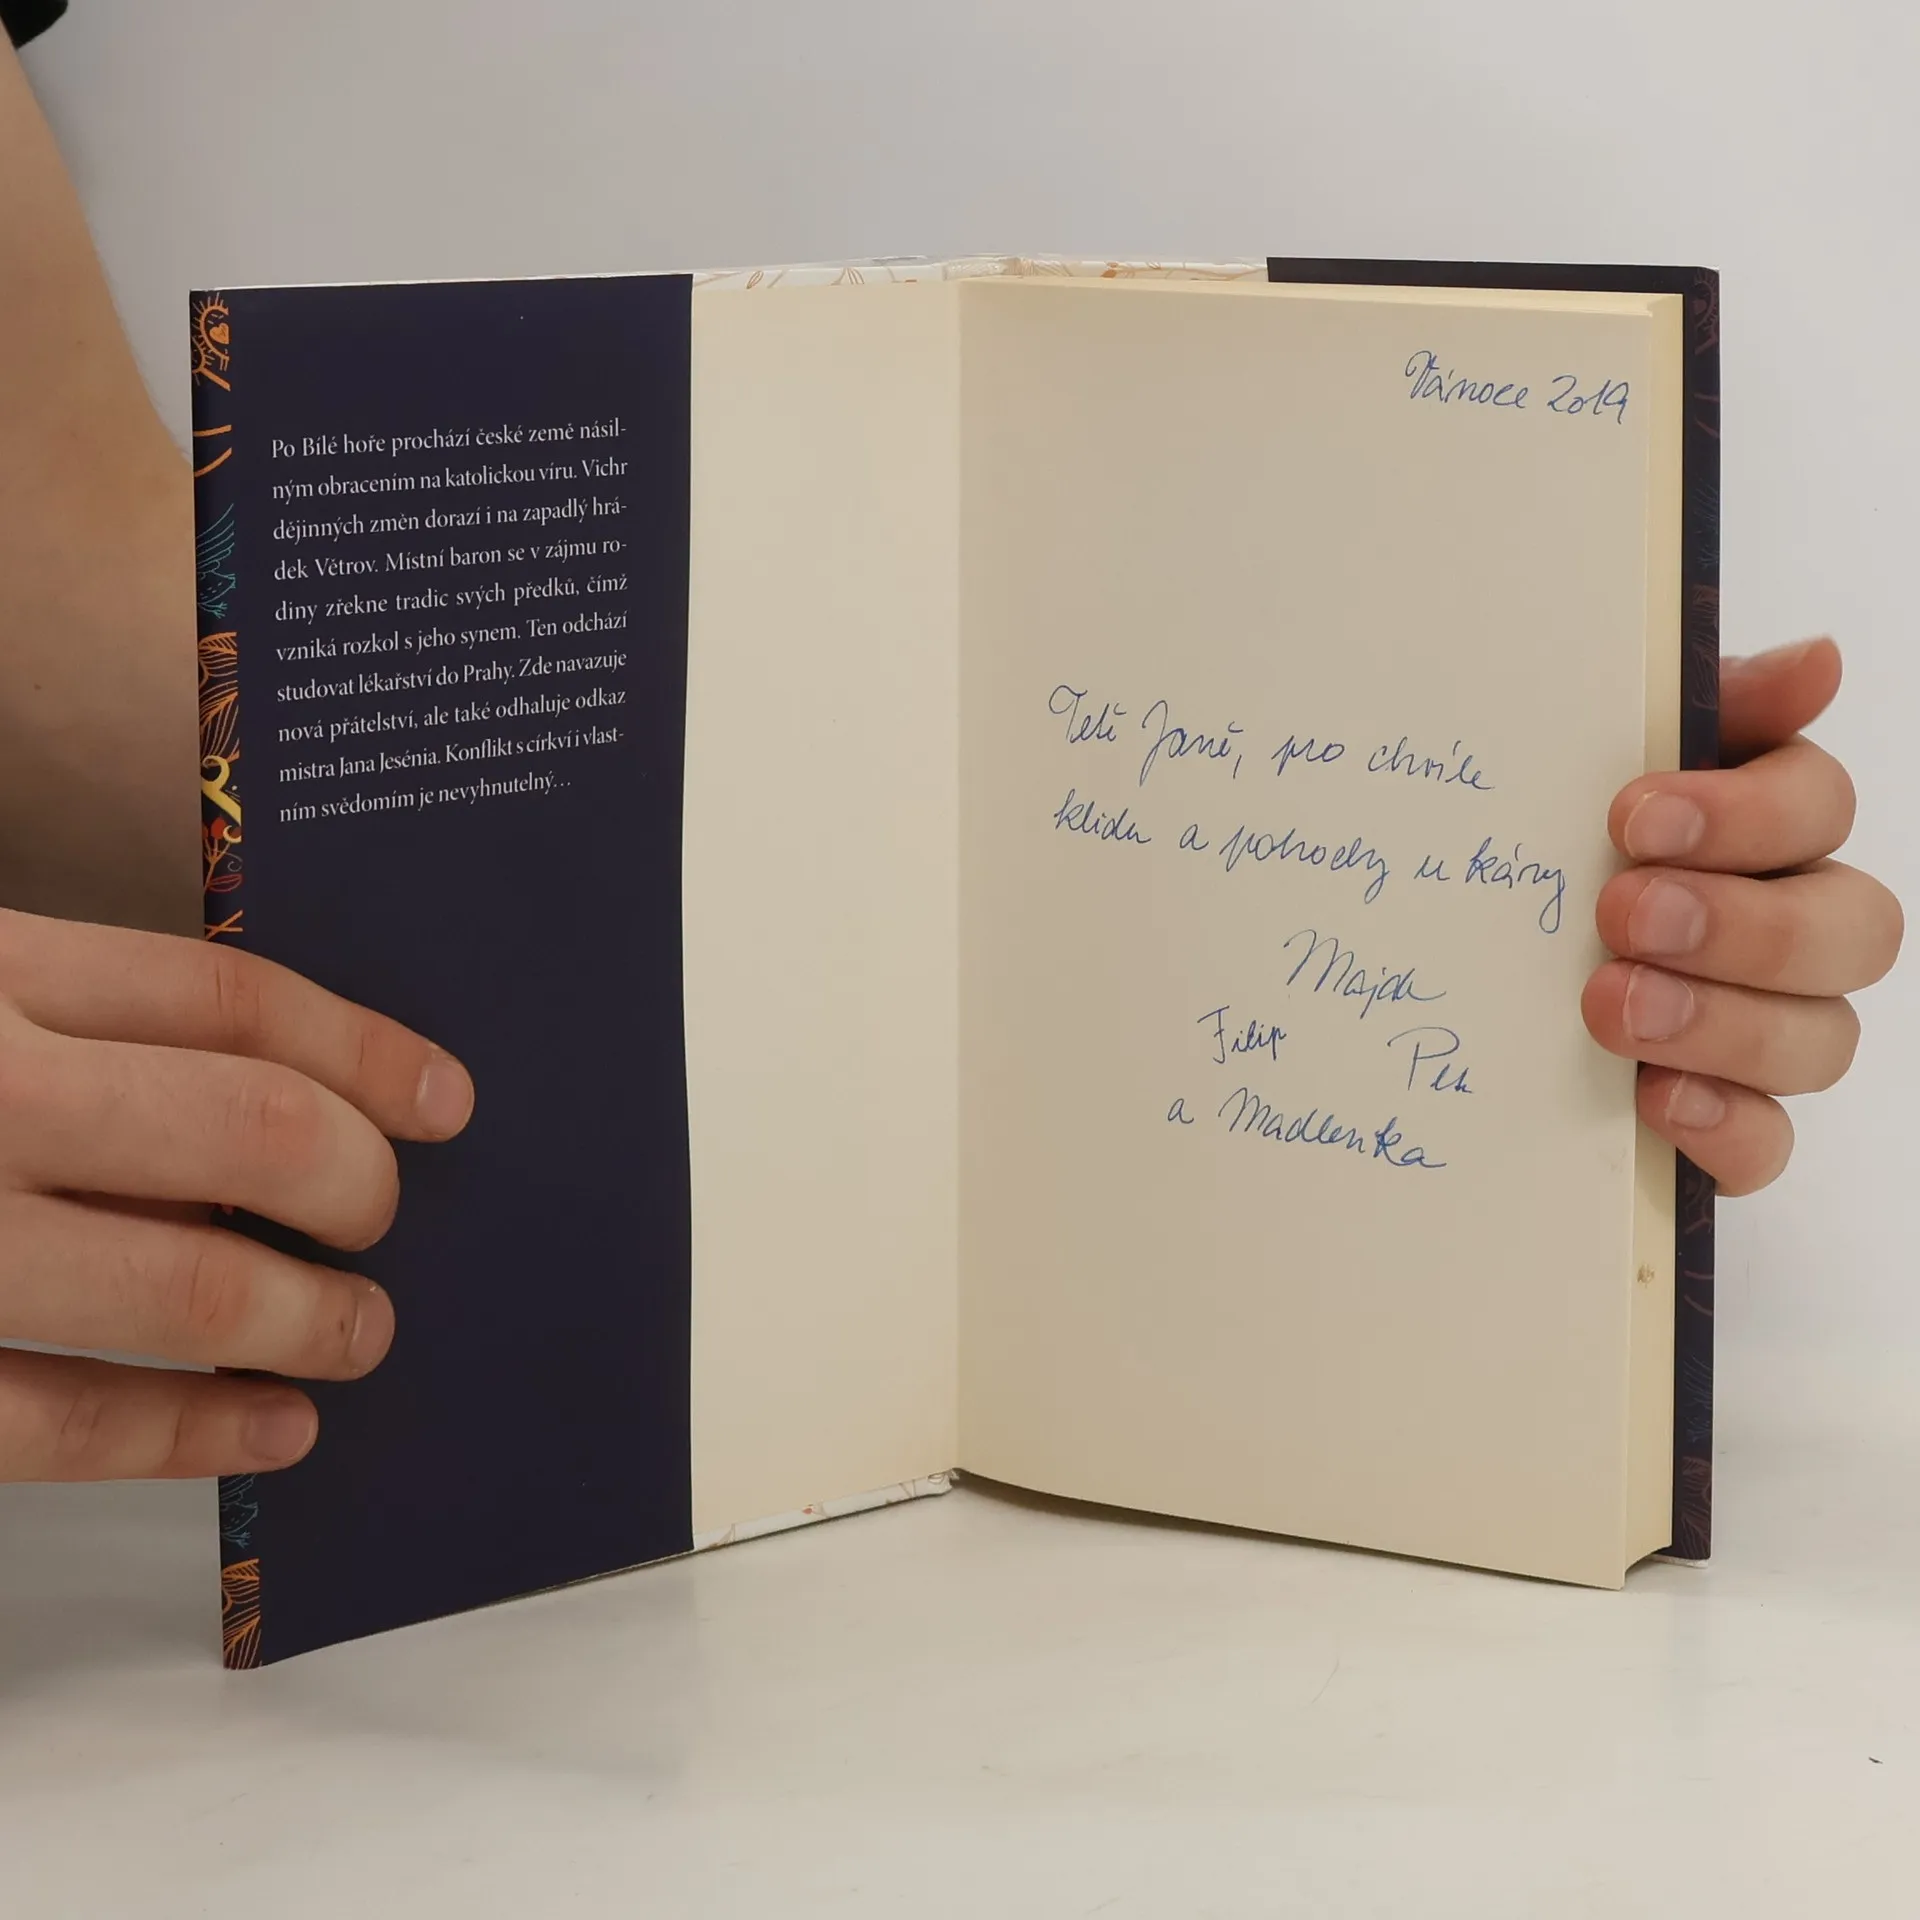 Po Bílé hoře prochází české země násil-
ným obracením na katolickou víru. Vichr
dějinných změn dorazí i na zapadlý hrá-
dek Větrov. Místní baron se v zájmu ro-
diny zřekne tradic svých předků, čímž
vzniká rozkol s jeho synem. Ten odchází
studovat lékařství do Prahy. Zde navazuje
nová přátelství, ale také odhaluje odkaz
mistra Jana Jesénia. Konflikt s církví i vlast-
ním svědomím je nevyhnutelný…
Vánoce 2019
Tetě Janě, pro chvíle
klidu a pohody u kávy
Majda
Filip
a Madlenka